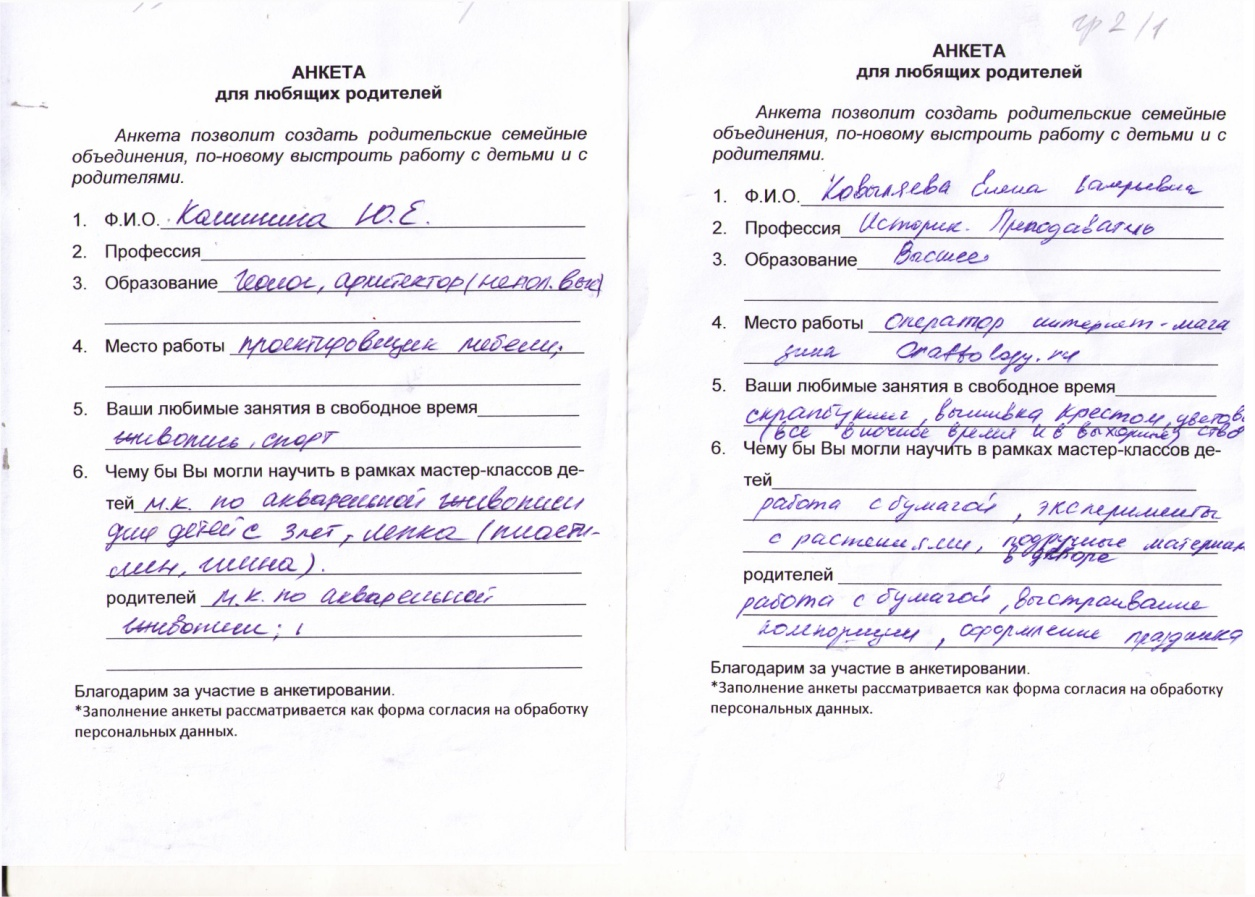 АНКЕТА
для любящих родителей
Анкета позволит создать родительские семейные
объединения, по-новому выстроить работу с детьми и с
родителями.
1. Ф.И.О. Калинина Ю.Е.
2. Профессия
3. Образование Геолог, архитектор (непол. высш)
4. Место работы проектировщик мебели;
5. Ваши любимые занятия в свободное время
живопись, спорт
6. Чему бы Вы могли научить в рамках мастер-классов де-
тей м.к. по акварельной живописи
для детей с 3 лет, лепка (пласти-
лин, глина).
родителей м.к. по акварельной
живописи;
Благодарим за участие в анкетировании.
*Заполнение анкеты рассматривается как форма согласия на обработку
персональных данных.
гр 2/1
АНКЕТА
для любящих родителей
Анкета позволит создать родительские семейные
объединения, по-новому выстроить работу с детьми и с
родителями.
1. Ф.И.О. Ковыляева Елена Валерьевна
2. Профессия Историк. Преподаватель
3. Образование Высшее
4. Место работы Оператор интернет-мага
зина Craftology.ru
5. Ваши любимые занятия в свободное время
скрапбукинг, вышивка крестом, цветовод
(все в ночное время и в выходные) ство
6. Чему бы Вы могли научить в рамках мастер-классов де-
тей
работа с бумагой, эксперименты
с растениями, подручные материал
в декоре
родителей
работа с бумагой, выстраивание
композиции, оформление праздника
Благодарим за участие в анкетировании.
*Заполнение анкеты рассматривается как форма согласия на обработку
персональных данных.